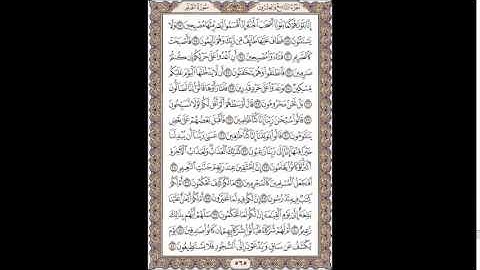 سُورَةُ القَلَمِ الجُزْءُ التَّاسِعُ وَالعِشْرُونَ
إِنَّا بَلَوْنَٰهُمْ كَمَا بَلَوْنَآ أَصْحَٰبَ ٱلْجَنَّةِ إِذْ أَقْسَمُوا۟ لَيَصْرِمُنَّهَا مُصْبِحِينَ ١٧ وَلَا
يَسْتَثْنُونَ ١٨ فَطَافَ عَلَيْهَا طَآئِفٌ مِّن رَّبِّكَ وَهُمْ نَآئِمُونَ ١٩ فَأَصْبَحَتْ
كَٱلصَّرِيمِ ٢٠ فَتَنَادَوْا۟ مُصْبِحِينَ ٢١ أَنِ ٱغْدُوا۟ عَلَىٰ حَرْثِكُمْ إِن كُنتُمْ
صَٰرِمِينَ ٢٢ فَٱنطَلَقُوا۟ وَهُمْ يَتَخَٰفَتُونَ ٢٣ أَن لَّا يَدْخُلَنَّهَا ٱلْيَوْمَ عَلَيْكُم
مِّسْكِينٌ ٢٤ وَغَدَوْا۟ عَلَىٰ حَرْدٍ قَٰدِرِينَ ٢٥ فَلَمَّا رَأَوْهَا قَالُوٓا۟ إِنَّا لَضَآلُّونَ
٢٦ بَلْ نَحْنُ مَحْرُومُونَ ٢٧ قَالَ أَوْسَطُهُمْ أَلَمْ أَقُل لَّكُمْ لَوْلَا تُسَبِّحُونَ
٢٨ قَالُوا۟ سُبْحَٰنَ رَبِّنَآ إِنَّا كُنَّا ظَٰلِمِينَ ٢٩ فَأَقْبَلَ بَعْضُهُمْ عَلَىٰ بَعْضٍ
يَتَلَٰوَمُونَ ٣٠ قَالُوا۟ يَٰوَيْلَنَآ إِنَّا كُنَّا طَٰغِينَ ٣١ عَسَىٰ رَبُّنَآ أَن يُبْدِلَنَا
خَيْرًا مِّنْهَآ إِنَّآ إِلَىٰ رَبِّنَا رَٰغِبُونَ ٣٢ كَذَٰلِكَ ٱلْعَذَابُ وَلَعَذَابُ ٱلْءَاخِرَةِ
أَكْبَرُ لَوْ كَانُوا۟ يَعْلَمُونَ ٣٣ إِنَّ لِلْمُتَّقِينَ عِندَ رَبِّهِمْ جَنَّٰتِ ٱلنَّعِيمِ ٣٤
أَفَنَجْعَلُ ٱلْمُسْلِمِينَ كَٱلْمُجْرِمِينَ ٣٥ مَا لَكُمْ كَيْفَ تَحْكُمُونَ ٣٦ أَمْ لَكُمْ
كِتَٰبٌ فِيهِ تَدْرُسُونَ ٣٧ إِنَّ لَكُمْ فِيهِ لَمَا تَخَيَّرُونَ ٣٨ أَمْ لَكُمْ أَيْمَٰنٌ عَلَيْنَا
بَٰلِغَةٌ إِلَىٰ يَوْمِ ٱلْقِيَٰمَةِ إِنَّ لَكُمْ لَمَا تَحْكُمُونَ ٣٩ سَلْهُمْ أَيُّهُم بِذَٰلِكَ
زَعِيمٌ ٤٠ أَمْ لَهُمْ شُرَكَآءُ فَلْيَأْتُوا۟ بِشُرَكَآئِهِمْ إِن كَانُوا۟ صَٰدِقِينَ ٤١ يَوْمَ
يُكْشَفُ عَن سَاقٍ وَيُدْعَوْنَ إِلَى ٱلسُّجُودِ فَلَا يَسْتَطِيعُونَ ٤٢
٥٦٥